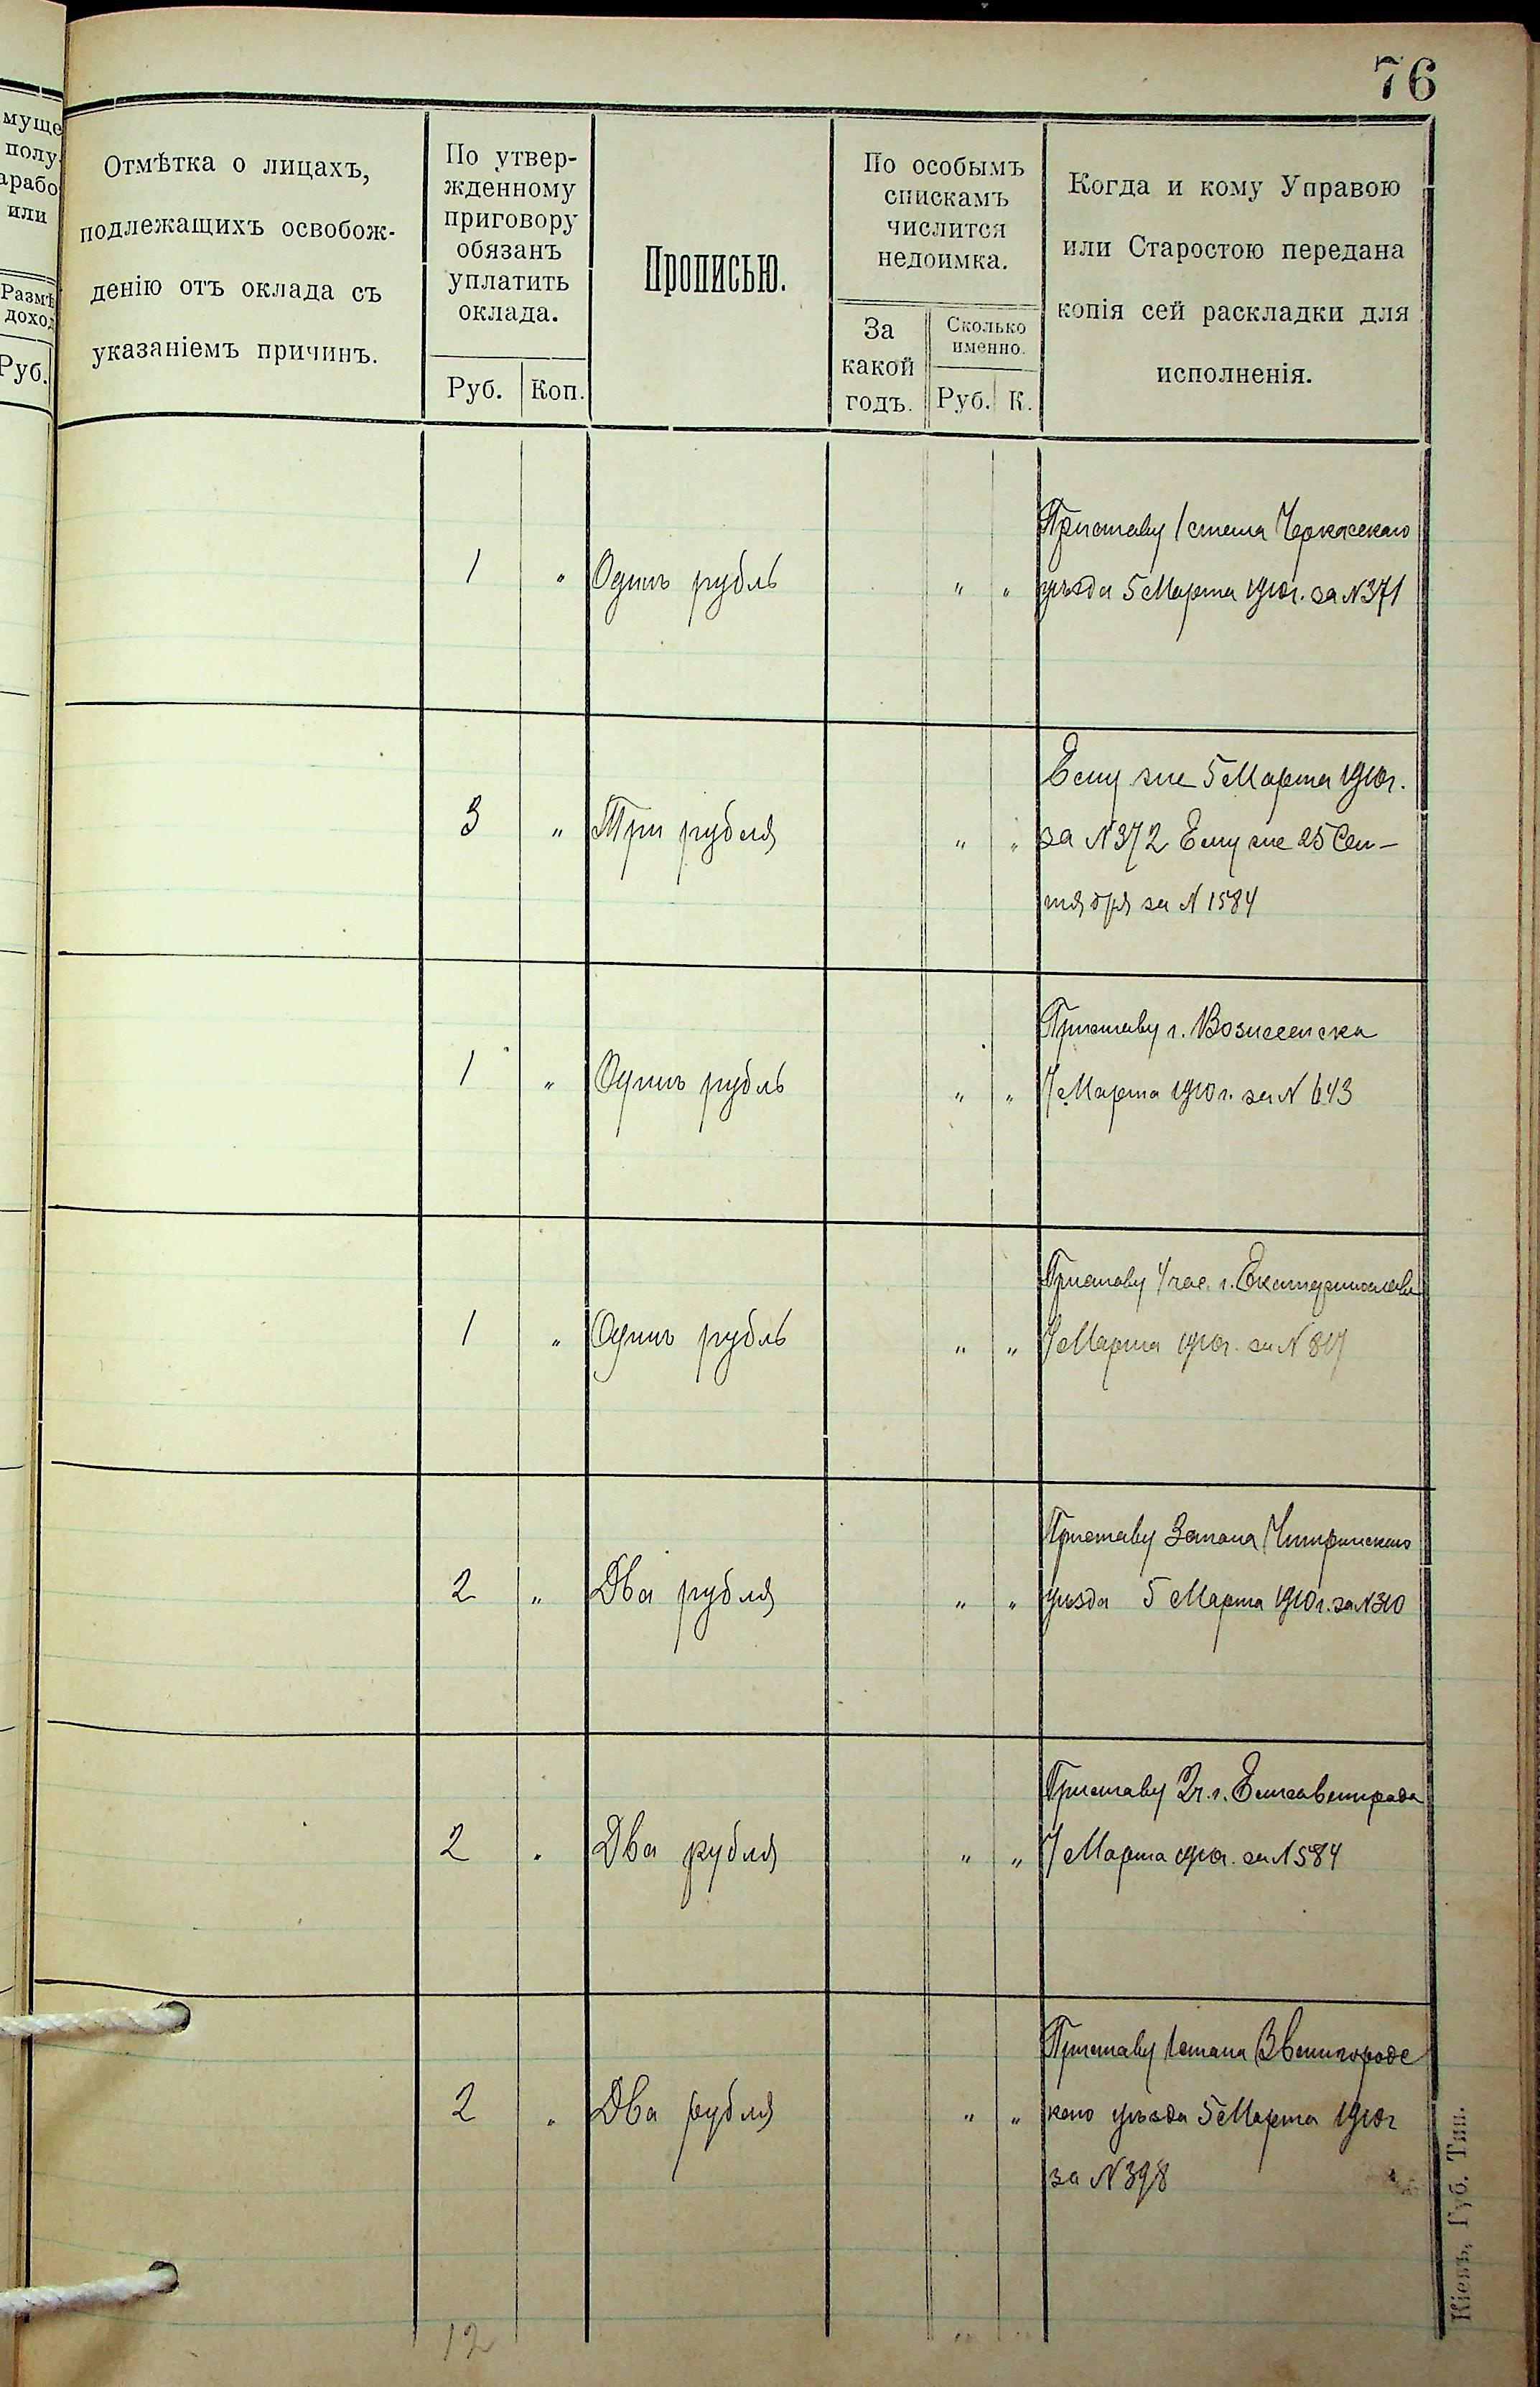 76
муще
полу
арабо
или
Размѣ
доход
Руб.
Отмѣтка о лицахъ,
подлежащихъ освобож-
денію отъ оклада съ
указаніемъ причинъ.
По утвер-
жденному
приговору
обязанъ
уплатить
оклада.
Руб. Коп.
Прописью.
По особымъ
спискамъ
числится
недоимка.
За
какой
годъ.
Сколько
именно.
Руб. К.
Когда и кому Управою
или Старостою передана
копія сей раскладки для
исполненія.
Приставу 1 стана Черкасскаго
1 " Одинъ рубль " " уѣзда 5 Марта 1910г. за N 371
Ему же 5 Марта 1910г.
3 " Три рубля " " за N 372 Ему же 25 Сен-
тября за N 1584
Приставу г. Вознесенска
1 " Одинъ рубль " " 7 Марта 1910 г. за N 643
Приставу 4 час. г. Екатеринослава
1 " Одинъ рубль " " 7 Марта 1910г. за N
Приставу 3 стана Чигиринскаго
2 " Два рубля " " уѣзда 5 Марта 1910 г. за N 310
Приставу 2 ч. г. Елисаветграда
2 " Два рубля " " 7 Марта 1910г. за N 584
Приставу 1 стана Звенигородс
2 " Два рубля " " каго уѣзда 5 Марта 1910г
за N 398
12 " "
Кіевъ, Губ. Тип.